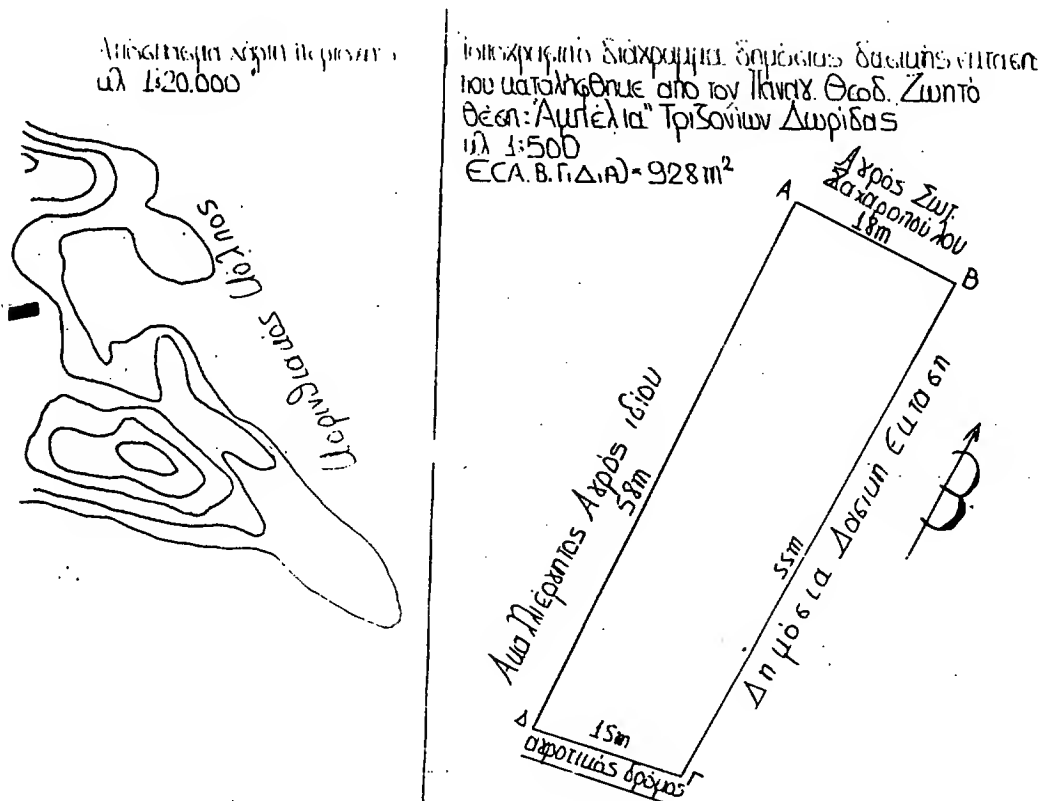 Απόσπασμα χάρτη περιοχής
κλ 1:20.000
Κορινθιακός Κόλπος
Τοπογραφικό διάγραμμα δημόσιας δασικής έκτασης
που καταλήφθηκε από τον Παναγ. Θεοδ. Ζωητό
Θέση: "Αμπέλια" Τριζονίων Δωρίδας
κλ 1:500
Ε(Α.Β.Γ.Δ.Α) = 928 m²
Αγρός Σωτ.
Ζαχαροπούλου
18m
Α
Β
Ακαλλιέργητος Αγρός ιδίου
58m
55m
Δημόσια Δασική Εκταση
Β
Δ
15m
Γ
αγροτικός δρόμος